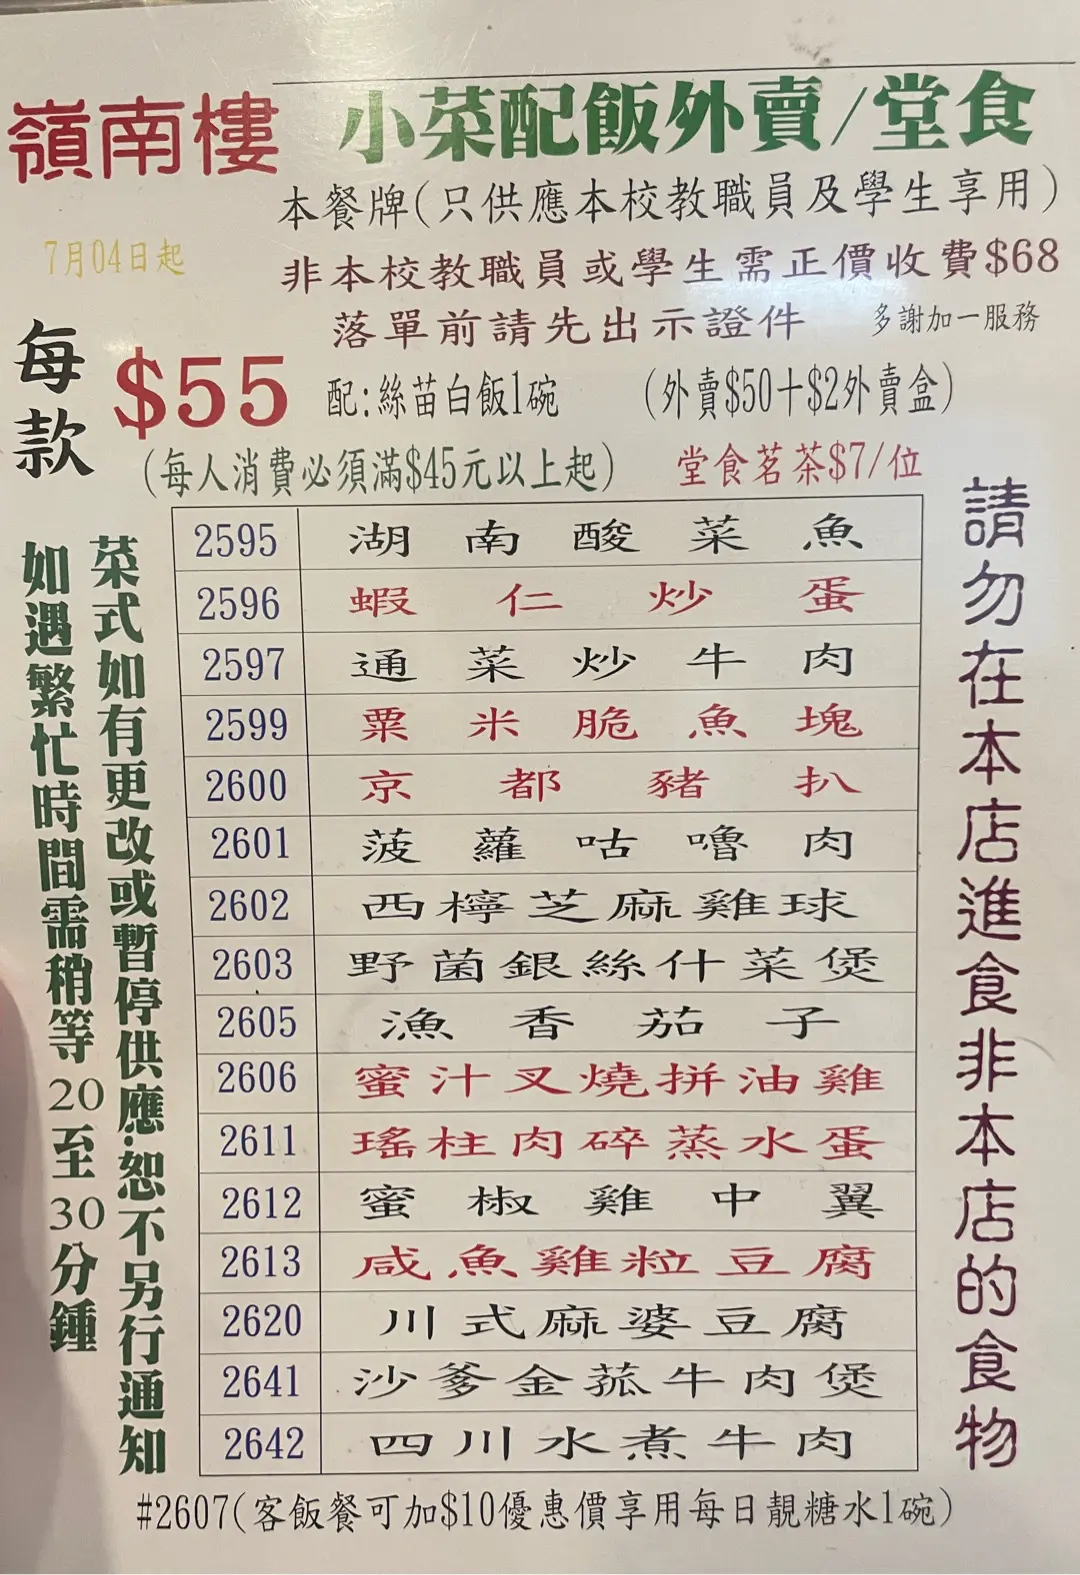 嶺南樓
小菜配飯外賣/堂食
本餐牌(只供應本校教職員及學生享用)
7月04日起
非本校教職員或學生需正價收費$68
落單前請先出示證件
多謝加一服務
每款
$55
配:絲苗白飯1碗
(外賣$50十$2外賣盒)
(每人消費必須滿$45元以上起)
堂食茗茶$7/位
2595 湖南酸菜魚
2596 蝦仁炒蛋
2597 通菜炒牛肉
2599 粟米脆魚塊
2600 京都豬扒
2601 菠蘿咕嚕肉
2602 西檸芝麻雞球
2603 野菌銀絲什菜煲
2605 漁香茄子
2606 蜜汁叉燒拼油雞
2611 瑤柱肉碎蒸水蛋
2612 蜜椒雞中翼
2613 咸魚雞粒豆腐
2620 川式麻婆豆腐
2641 沙爹金菰牛肉煲
2642 四川水煮牛肉
請勿在本店進食非本店的食物
菜式如有更改或暫停供應.恕不另行通知
如遇繁忙時間需稍等20至30分鍾
#2607(客飯餐可加$10優惠價享用每日靚糖水1碗)